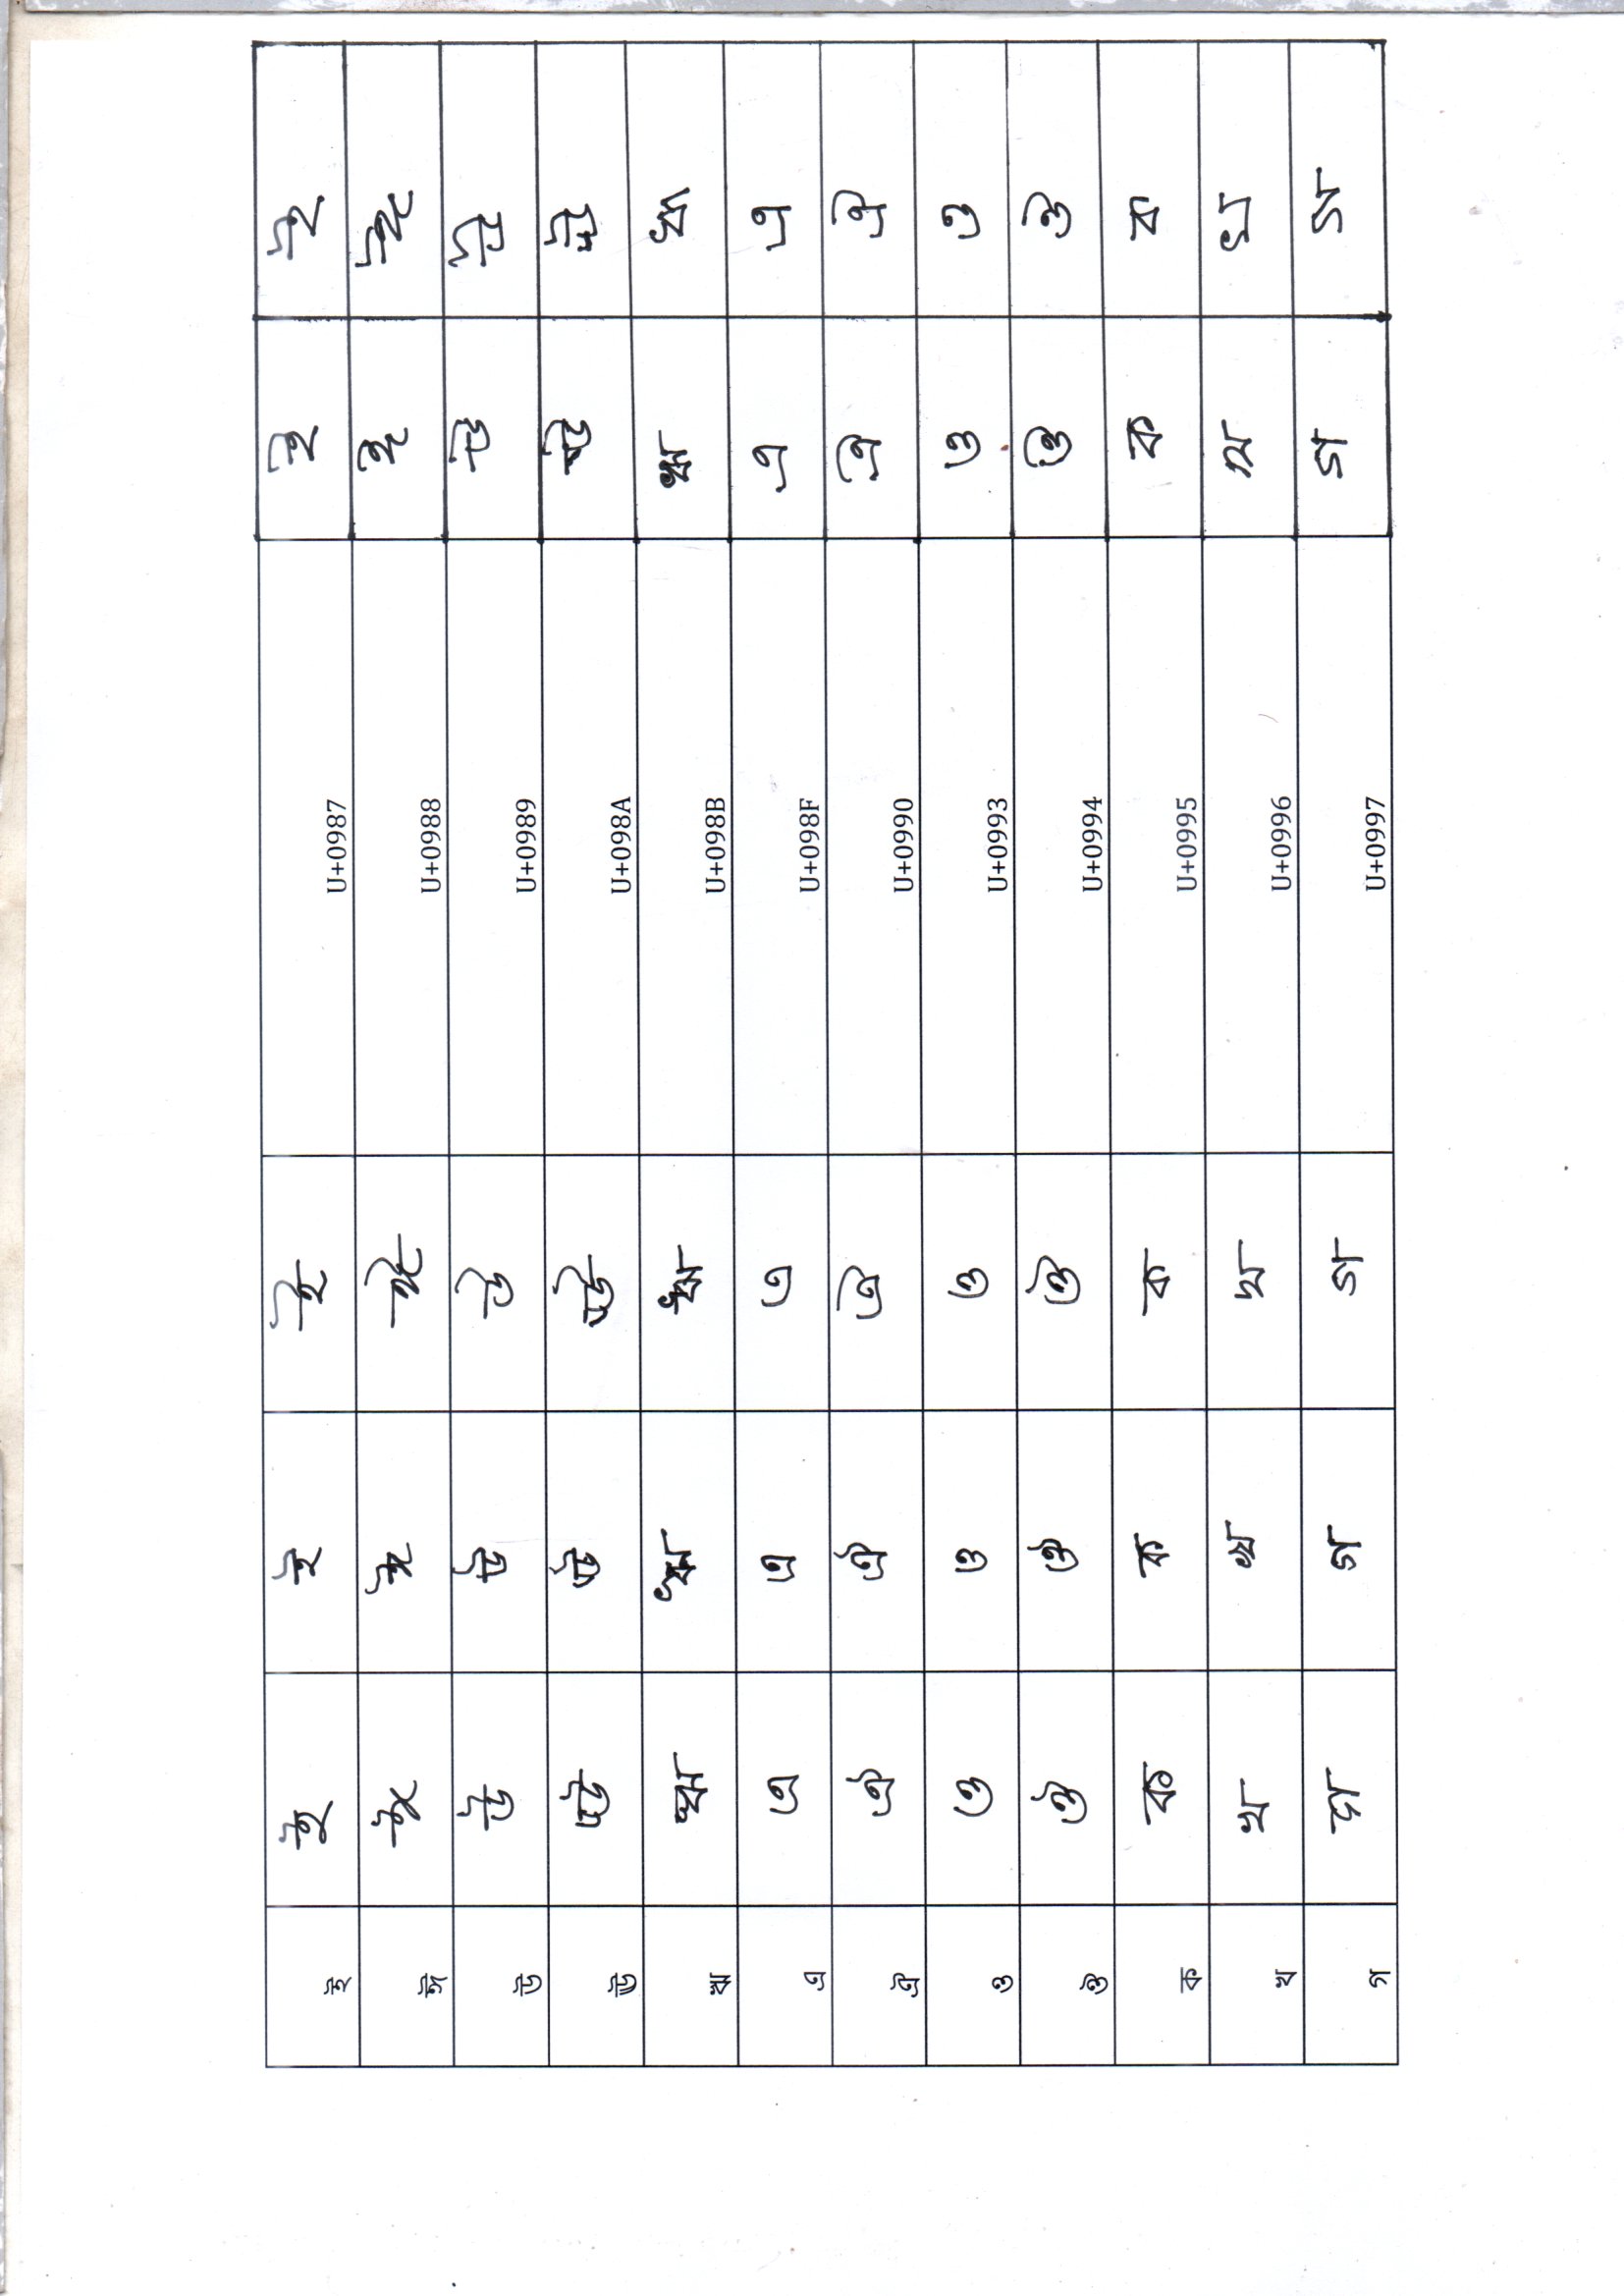 ই ই ই ই U+0987 ই ই
ঈ ঈ ঈ ঈ U+0988 ঈ ঈ
উ উ উ উ U+0989 উ উ
ঊ ঊ ঊ ঊ U+098A ঊ ঊ
ঋ ঋ ঋ ঋ U+098B ঋ ঋ
এ এ এ এ U+098F এ এ
ঐ ঐ ঐ ঐ U+0990 ঐ ঐ
ও ও ও ও U+0993 ও ও
ঔ ঔ ঔ ঔ U+0994 ঔ ঔ
ক ক ক ক U+0995 ক ক
খ খ খ খ U+0996 খ খ
গ গ গ গ U+0997 গ গ